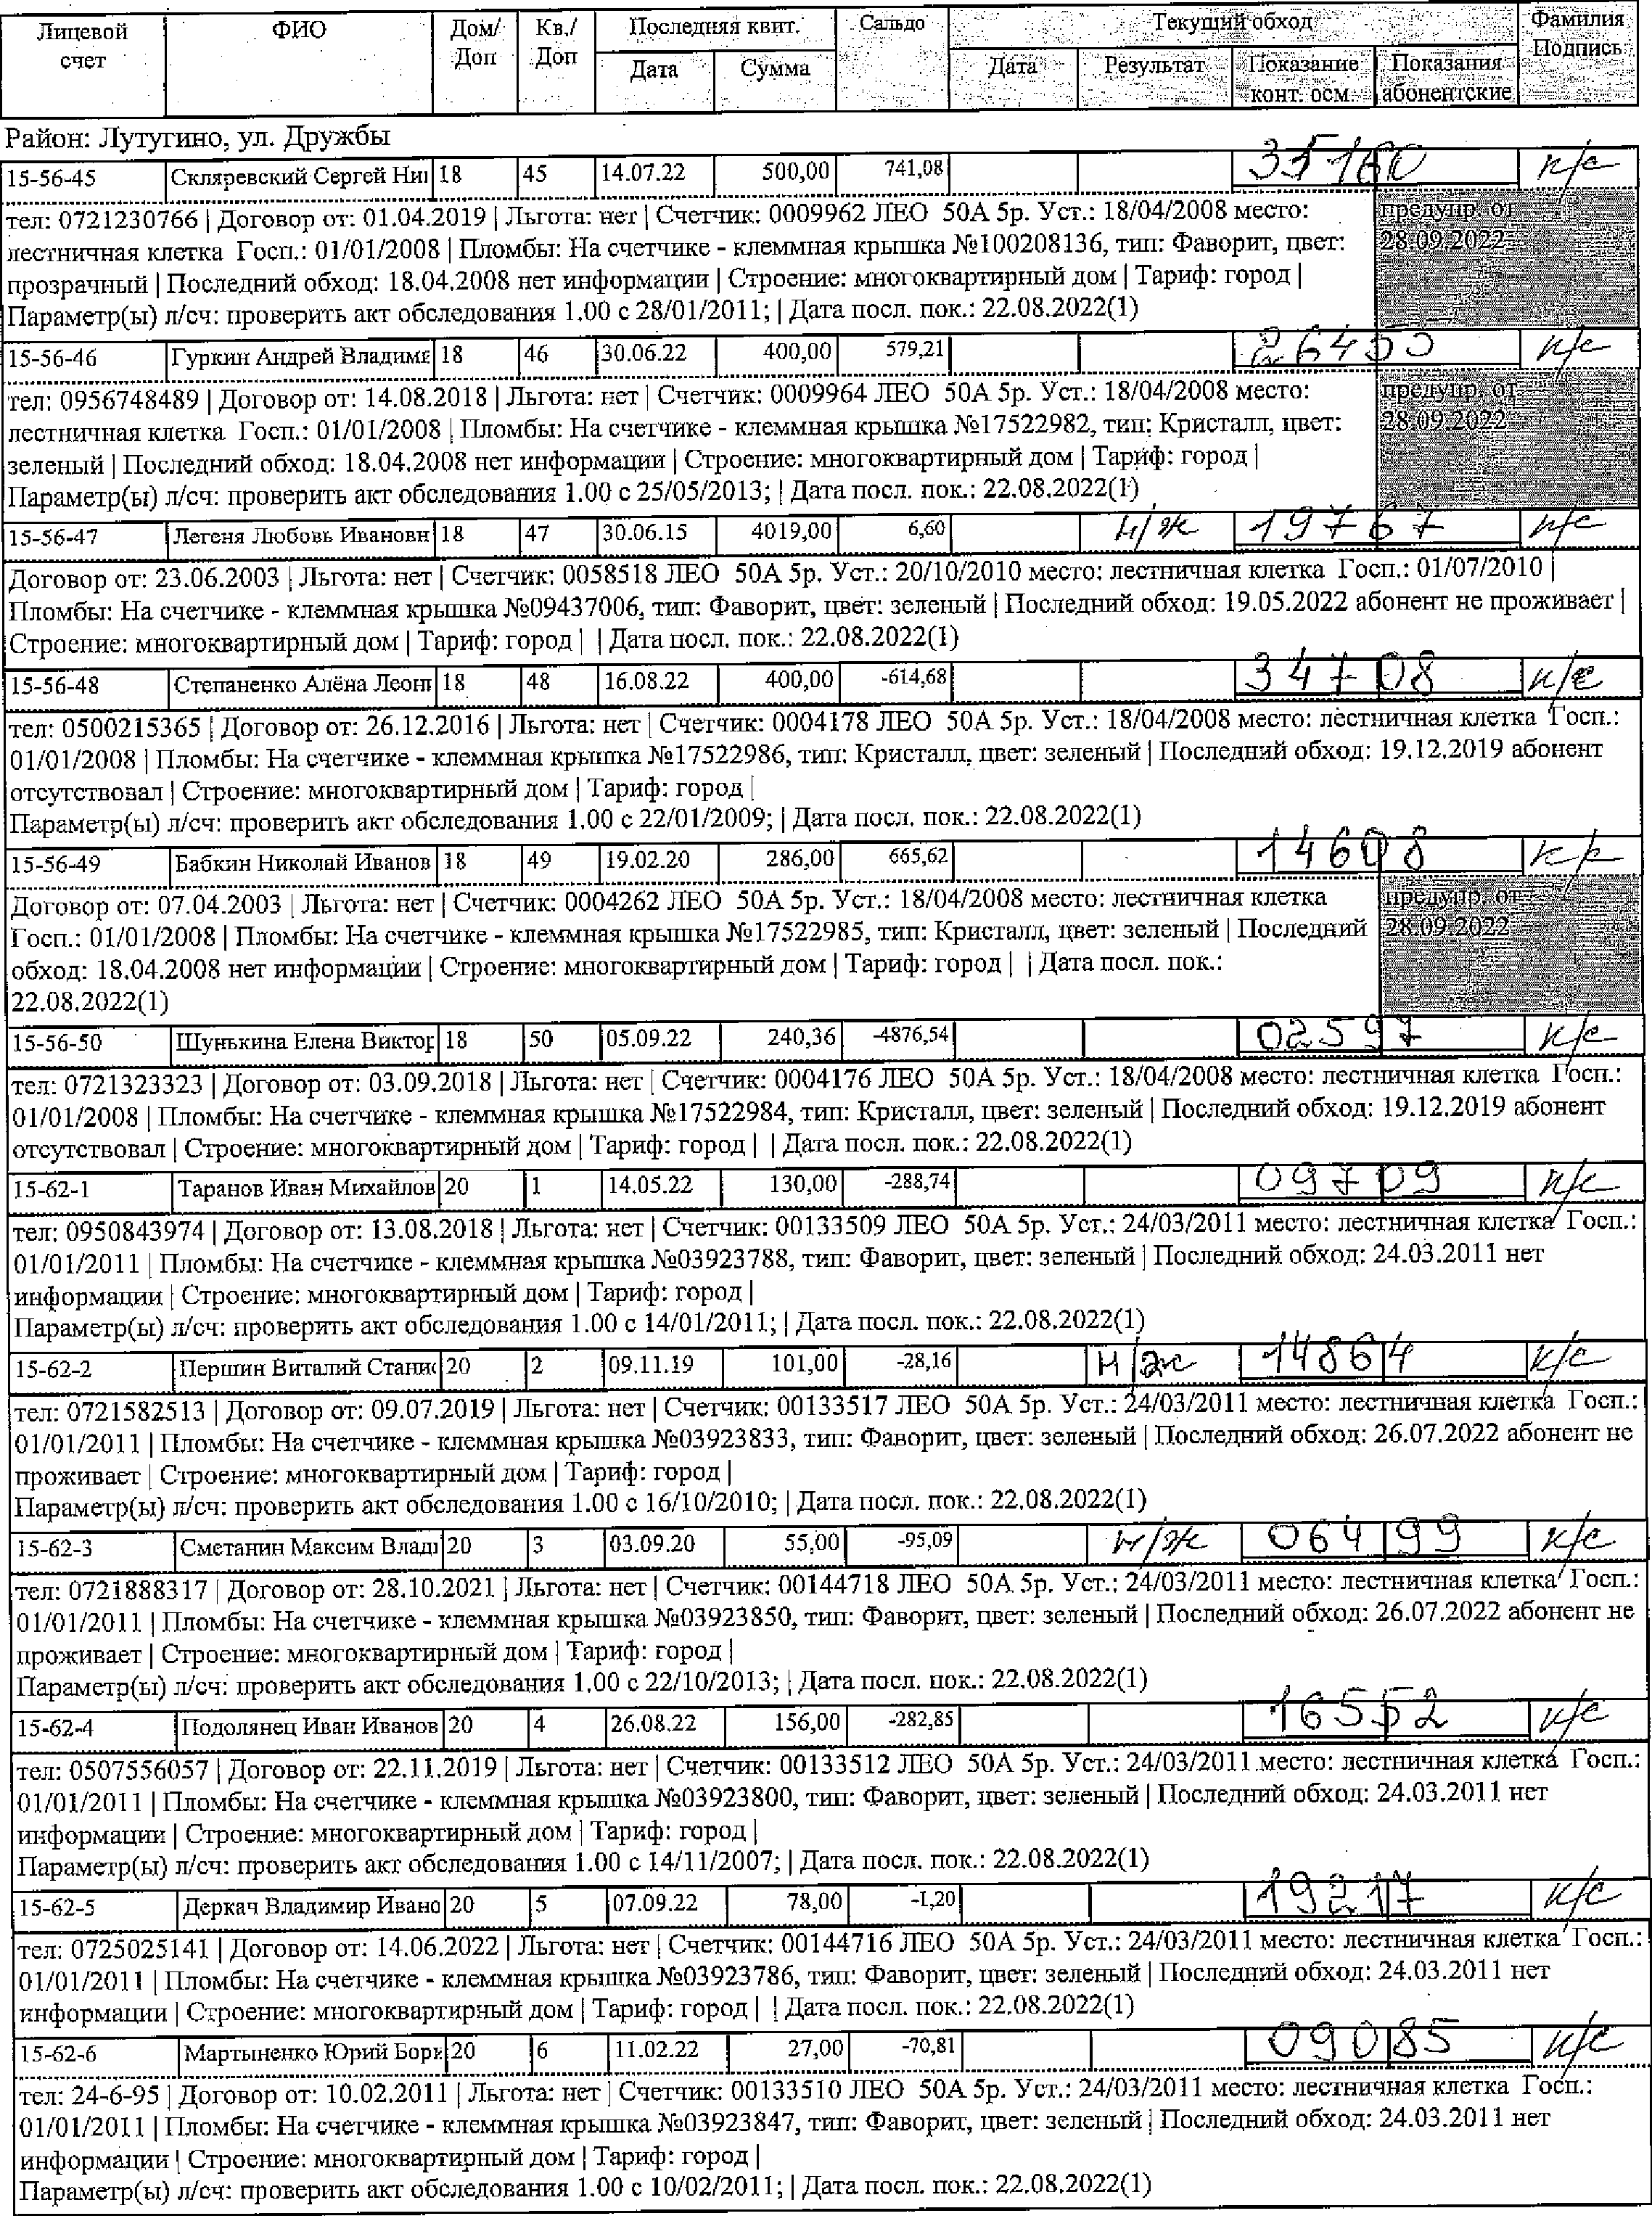 Лицевой счет | ФИО | Дом/ Доп | Кв./ Доп | Последняя квит. | Сальдо | Текущий обход | Фамилия Подпись
Дата | Сумма | Дата | Результат | Показание конт. осм. | Показания абонентские
Район: Лутугино, ул. Дружбы
15-56-45 | Скляревский Сергей Ни | 18 | 45 | 14.07.22 | 500,00 | 741,08 | 35160 | к/с
тел: 0721230766 | Договор от: 01.04.2019 | Льгота: нет | Счетчик: 0009962 ЛЕО 50А 5р. Уст.: 18/04/2008 место: предупр. от
лестничная клетка Госп.: 01/01/2008 | Пломбы: На счетчике - клеммная крышка №100208136, тип: Фаворит, цвет: 28.09.2022
прозрачный | Последний обход: 18.04.2008 нет информации | Строение: многоквартирный дом | Тариф: город |
Параметр(ы) л/сч: проверить акт обследования 1.00 с 28/01/2011; | Дата посл. пок.: 22.08.2022(1)
15-56-46 | Гуркин Андрей Владиме | 18 | 46 | 30.06.22 | 400,00 | 579,21 | 26455 | к/с
тел: 0956748489 | Договор от: 14.08.2018 | Льгота: нет | Счетчик: 0009964 ЛЕО 50А 5р. Уст.: 18/04/2008 место: предупр. от
лестничная клетка Госп.: 01/01/2008 | Пломбы: На счетчике - клеммная крышка №17522982, тип: Кристалл, цвет: 28.09.2022
зеленый | Последний обход: 18.04.2008 нет информации | Строение: многоквартирный дом | Тариф: город |
Параметр(ы) л/сч: проверить акт обследования 1.00 с 25/05/2013; | Дата посл. пок.: 22.08.2022(1)
15-56-47 | Легеня Любовь Ивановн | 18 | 47 | 30.06.15 | 4019,00 | 6,60 | н/ж | 19767 | к/с
Договор от: 23.06.2003 | Льгота: нет | Счетчик: 0058518 ЛЕО 50А 5р. Уст.: 20/10/2010 место: лестничная клетка Госп.: 01/07/2010 |
Пломбы: На счетчике - клеммная крышка №09437006, тип: Фаворит, цвет: зеленый | Последний обход: 19.05.2022 абонент не проживает |
Строение: многоквартирный дом | Тариф: город | | Дата посл. пок.: 22.08.2022(1)
15-56-48 | Степаненко Алёна Леон | 18 | 48 | 16.08.22 | 400,00 | -614,68 | 34708 | к/с
тел: 0500215365 | Договор от: 26.12.2016 | Льгота: нет | Счетчик: 0004178 ЛЕО 50А 5р. Уст.: 18/04/2008 место: лестничная клетка Госп.:
01/01/2008 | Пломбы: На счетчике - клеммная крышка №17522986, тип: Кристалл, цвет: зеленый | Последний обход: 19.12.2019 абонент
отсутствовал | Строение: многоквартирный дом | Тариф: город |
Параметр(ы) л/сч: проверить акт обследования 1.00 с 22/01/2009; | Дата посл. пок.: 22.08.2022(1)
15-56-49 | Бабкин Николай Иванов | 18 | 49 | 19.02.20 | 286,00 | 665,62 | 14608 | к/с
Договор от: 07.04.2003 | Льгота: нет | Счетчик: 0004262 ЛЕО 50А 5р. Уст.: 18/04/2008 место: лестничная клетка предупр. от
Госп.: 01/01/2008 | Пломбы: На счетчике - клеммная крышка №17522985, тип: Кристалл, цвет: зеленый | Последний 28.09.2022
обход: 18.04.2008 нет информации | Строение: многоквартирный дом | Тариф: город | | Дата посл. пок.:
22.08.2022(1)
15-56-50 | Шунькина Елена Виктор | 18 | 50 | 05.09.22 | 240,36 | -4876,54 | 02597 | к/с
тел: 0721323323 | Договор от: 03.09.2018 | Льгота: нет | Счетчик: 0004176 ЛЕО 50А 5р. Уст.: 18/04/2008 место: лестничная клетка Госп.:
01/01/2008 | Пломбы: На счетчике - клеммная крышка №17522984, тип: Кристалл, цвет: зеленый | Последний обход: 19.12.2019 абонент
отсутствовал | Строение: многоквартирный дом | Тариф: город | | Дата посл. пок.: 22.08.2022(1)
15-62-1 | Таранов Иван Михайлов | 20 | 1 | 14.05.22 | 130,00 | -288,74 | 09709 | к/с
тел: 0950843974 | Договор от: 13.08.2018 | Льгота: нет | Счетчик: 00133509 ЛЕО 50А 5р. Уст.: 24/03/2011 место: лестничная клетка Госп.:
01/01/2011 | Пломбы: На счетчике - клеммная крышка №03923788, тип: Фаворит, цвет: зеленый | Последний обход: 24.03.2011 нет
информации | Строение: многоквартирный дом | Тариф: город |
Параметр(ы) л/сч: проверить акт обследования 1.00 с 14/01/2011; | Дата посл. пок.: 22.08.2022(1)
15-62-2 | Першин Виталий Станис | 20 | 2 | 09.11.19 | 101,00 | -28,16 | н/ж | 14864 | к/с
тел: 0721582513 | Договор от: 09.07.2019 | Льгота: нет | Счетчик: 00133517 ЛЕО 50А 5р. Уст.: 24/03/2011 место: лестничная клетка Госп.:
01/01/2011 | Пломбы: На счетчике - клеммная крышка №03923833, тип: Фаворит, цвет: зеленый | Последний обход: 26.07.2022 абонент не
проживает | Строение: многоквартирный дом | Тариф: город |
Параметр(ы) л/сч: проверить акт обследования 1.00 с 16/10/2010; | Дата посл. пок.: 22.08.2022(1)
15-62-3 | Сметанин Максим Влад | 20 | 3 | 03.09.20 | 55,00 | -95,09 | н/ж | 06499 | к/с
тел: 0721888317 | Договор от: 28.10.2021 | Льгота: нет | Счетчик: 00144718 ЛЕО 50А 5р. Уст.: 24/03/2011 место: лестничная клетка Госп.:
01/01/2011 | Пломбы: На счетчике - клеммная крышка №03923850, тип: Фаворит, цвет: зеленый | Последний обход: 26.07.2022 абонент не
проживает | Строение: многоквартирный дом | Тариф: город |
Параметр(ы) л/сч: проверить акт обследования 1.00 с 22/10/2013; | Дата посл. пок.: 22.08.2022(1)
15-62-4 | Подолянец Иван Иванов | 20 | 4 | 26.08.22 | 156,00 | -282,85 | 16552 | к/с
тел: 0507556057 | Договор от: 22.11.2019 | Льгота: нет | Счетчик: 00133512 ЛЕО 50А 5р. Уст.: 24/03/2011 место: лестничная клетка Госп.:
01/01/2011 | Пломбы: На счетчике - клеммная крышка №03923800, тип: Фаворит, цвет: зеленый | Последний обход: 24.03.2011 нет
информации | Строение: многоквартирный дом | Тариф: город |
Параметр(ы) л/сч: проверить акт обследования 1.00 с 14/11/2007; | Дата посл. пок.: 22.08.2022(1)
15-62-5 | Деркач Владимир Ивано | 20 | 5 | 07.09.22 | 78,00 | -1,20 | 19217 | к/с
тел: 0725025141 | Договор от: 14.06.2022 | Льгота: нет | Счетчик: 00144716 ЛЕО 50А 5р. Уст.: 24/03/2011 место: лестничная клетка Госп.:
01/01/2011 | Пломбы: На счетчике - клеммная крышка №03923786, тип: Фаворит, цвет: зеленый | Последний обход: 24.03.2011 нет
информации | Строение: многоквартирный дом | Тариф: город | | Дата посл. пок.: 22.08.2022(1)
15-62-6 | Мартыненко Юрий Бори | 20 | 6 | 11.02.22 | 27,00 | -70,81 | 09085 | к/с
тел: 24-6-95 | Договор от: 10.02.2011 | Льгота: нет | Счетчик: 00133510 ЛЕО 50А 5р. Уст.: 24/03/2011 место: лестничная клетка Госп.:
01/01/2011 | Пломбы: На счетчике - клеммная крышка №03923847, тип: Фаворит, цвет: зеленый | Последний обход: 24.03.2011 нет
информации | Строение: многоквартирный дом | Тариф: город |
Параметр(ы) л/сч: проверить акт обследования 1.00 с 10/02/2011; | Дата посл. пок.: 22.08.2022(1)